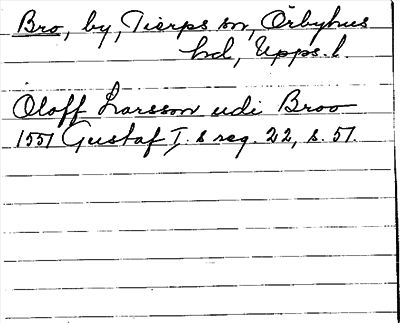 Bro, by, Tierps sn, Örbyhus
hd, Upps. l.
Oloff Larsson udi Broo
1551 Gustaf I.s reg. 22, s. 51.